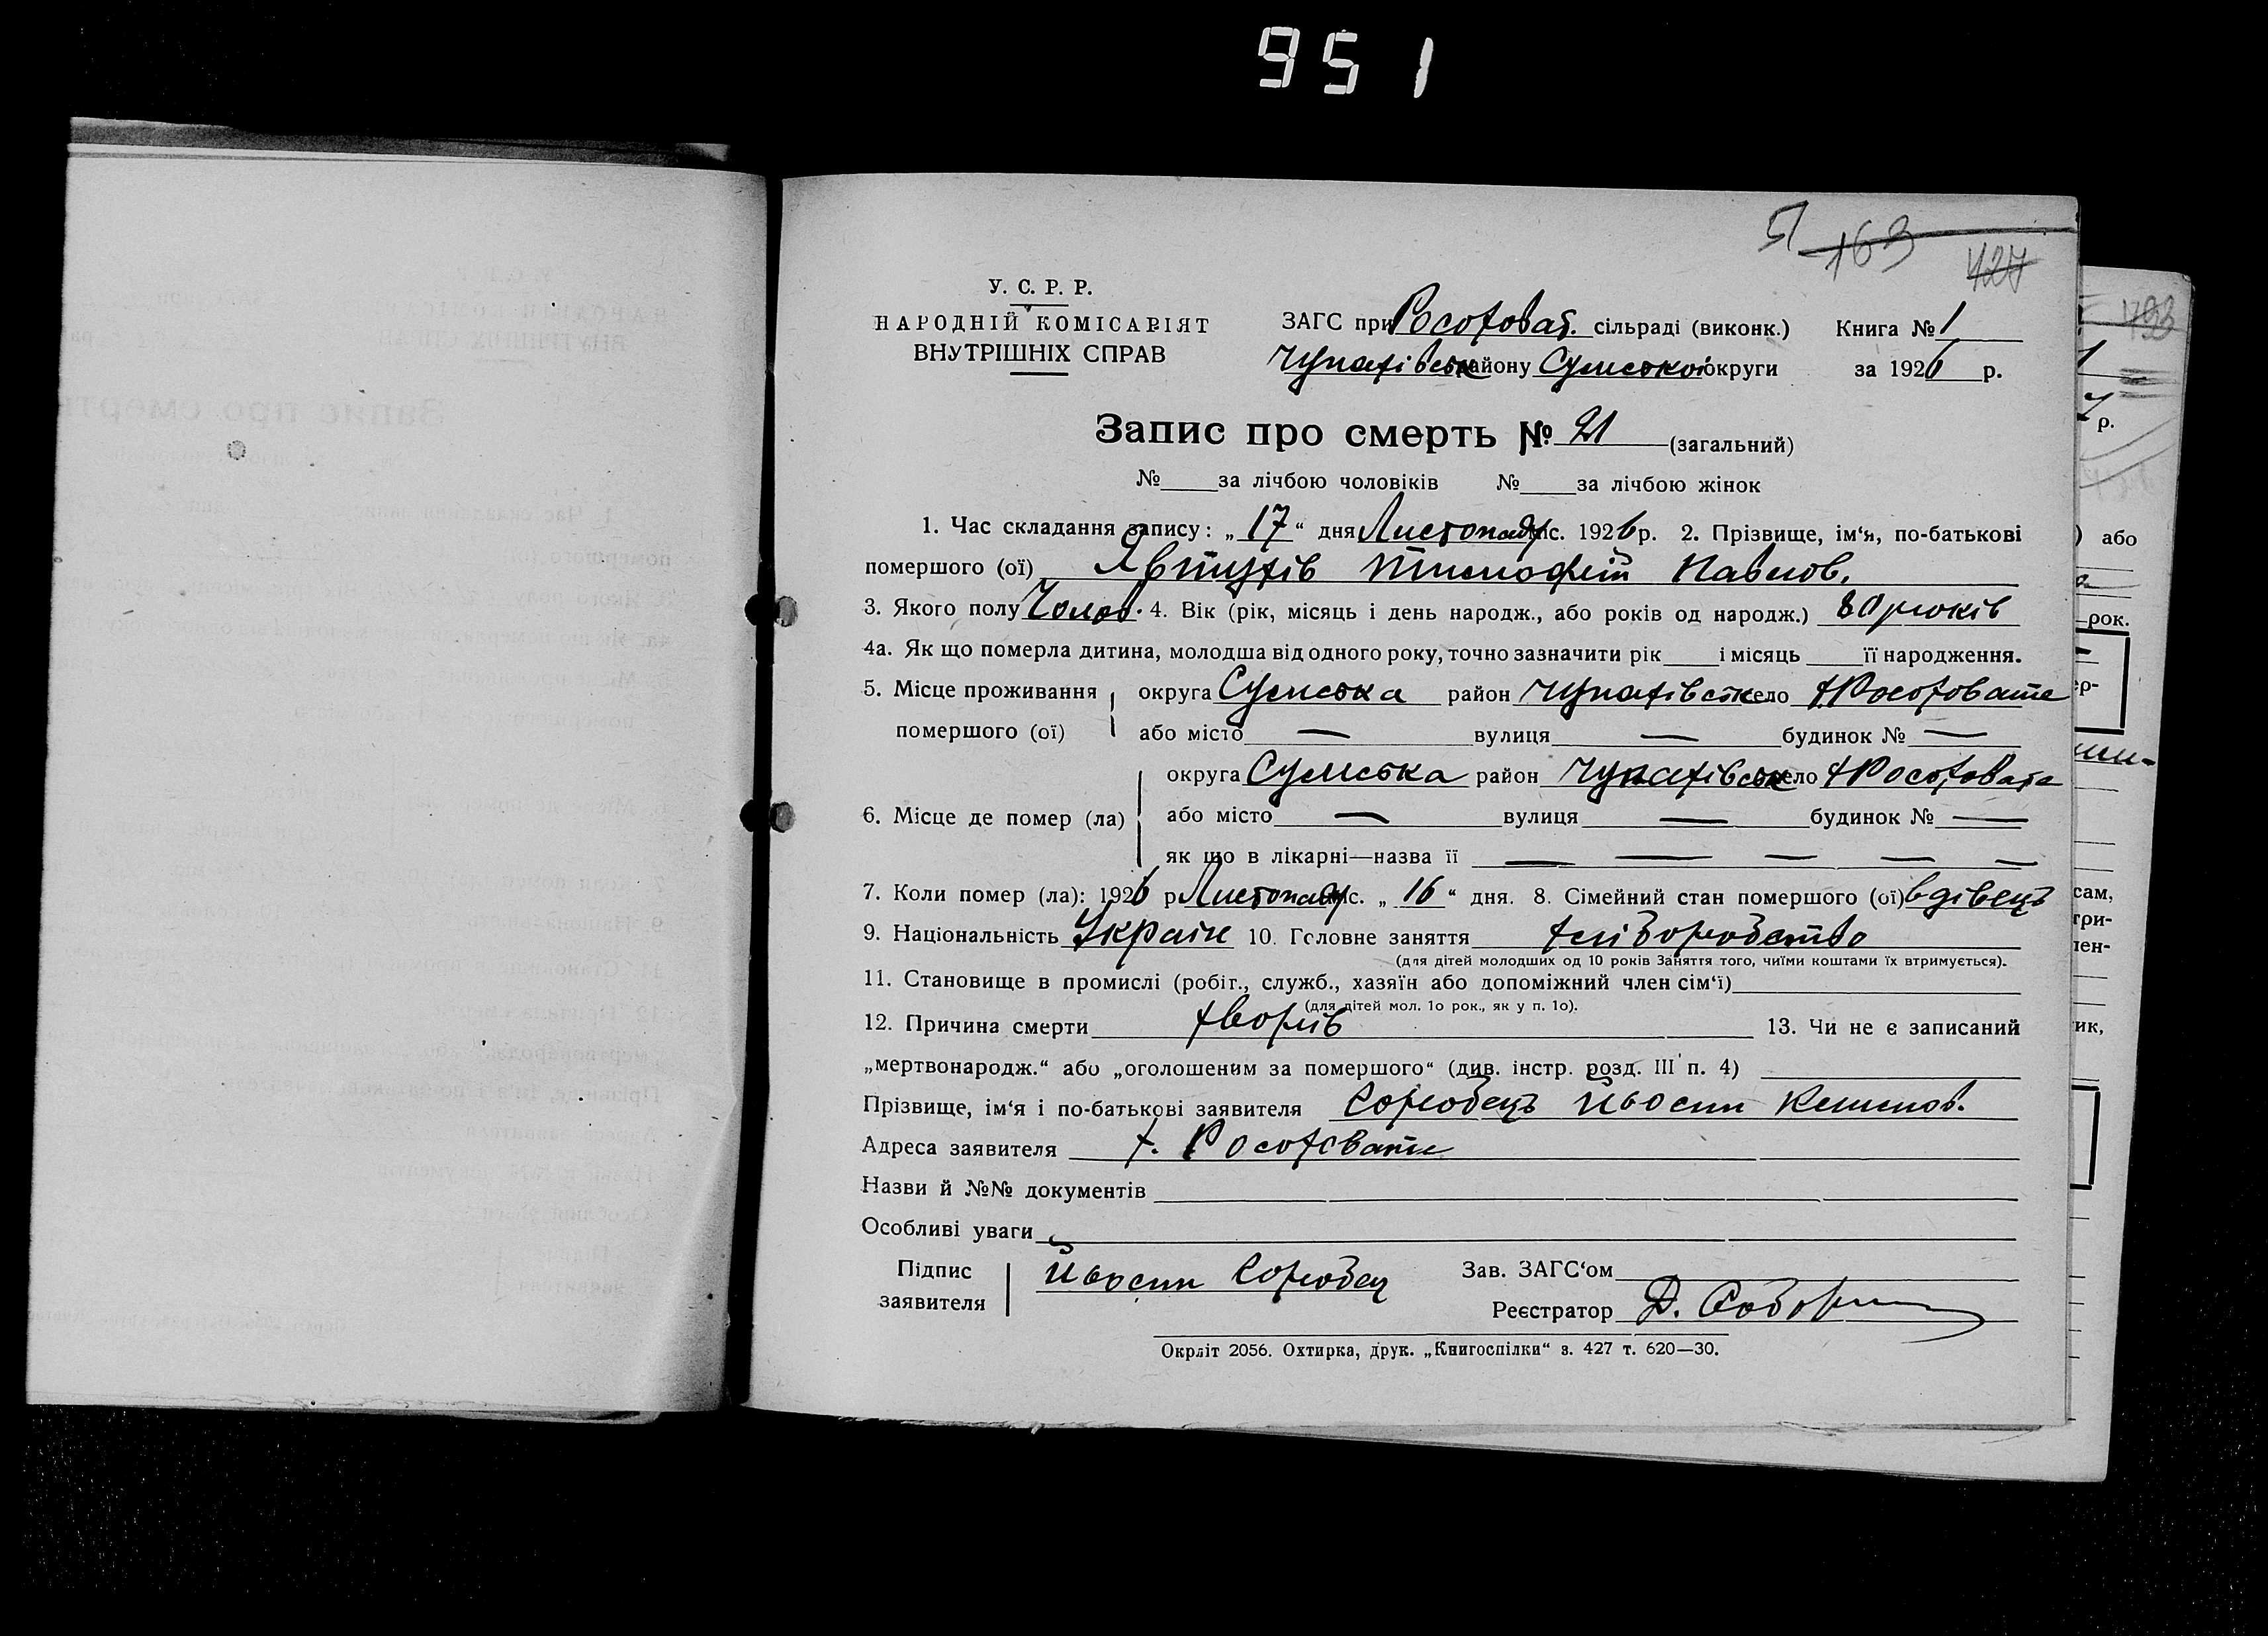 951
163
427
У. С. Р. Р.
НАРОДНІЙ КОМІСАРІЯТ
ВНУТРІШНІХ СПРАВ
ЗАГС при Росоховат. сільраді (виконк.) Книга № 1
Чупахівськ району Сумської округи за 1926 р.
Запис про смерть № 21 (загальний)
№ за лічбою чоловіків № за лічбою жінок
1. Час складання запису: „17“ дня Листопад міс. 1926 р. 2. Прізвище, ім‘я, по-батькові
помершого (ої) Явтухів Тимофей Павлов.
3. Якого полу Чолов. 4. Вік (рік, місяць і день народж., або років од народж.) 80 років
4а. Як що померла дитина, молодша від одного року, точно зазначити рік і місяць її народження.
5. Місце проживання помершого (ої) округа Сумська район Чупахівськ село х Росоховате
або місто — вулиця — будинок № —
6. Місце де помер (ла) округа Сумська район Чупахівськ село х Росоховате
або місто — вулиця — будинок № —
як що в лікарні—назва її — — — — —
7. Коли помер (ла): 1926 р. Листопад міс. „16“ дня. 8. Сімейний стан помершого (ої) вдівець
9. Національність Україн 10. Головне заняття хліборобство
(для дітей молодших од 10 років Заняття того, чиїми коштами їх втримується).
11. Становище в промислі (робіт., служб., хазяїн або допоміжний член сім‘ї)
(для дітей мол. 1о рок., як у п. 1о).
12. Причина смерти хворів 13. Чи не є записаний
„мертвонародж.“ або „оголошеним за помершого“ (див. інстр. розд. III п. 4)
Прізвище, ім‘я і по-батькові заявителя Коробець Йвосип
Адреса заявителя х. Росоховати
Назви й №№ документів
Особливі уваги
Підпис заявителя Йвосип Коробец
Зав. ЗАГС‘ом
Реєстратор Д.
Окрліт 2056. Охтирка, друк. „Книгоспілки“ з. 427 т. 620—30.